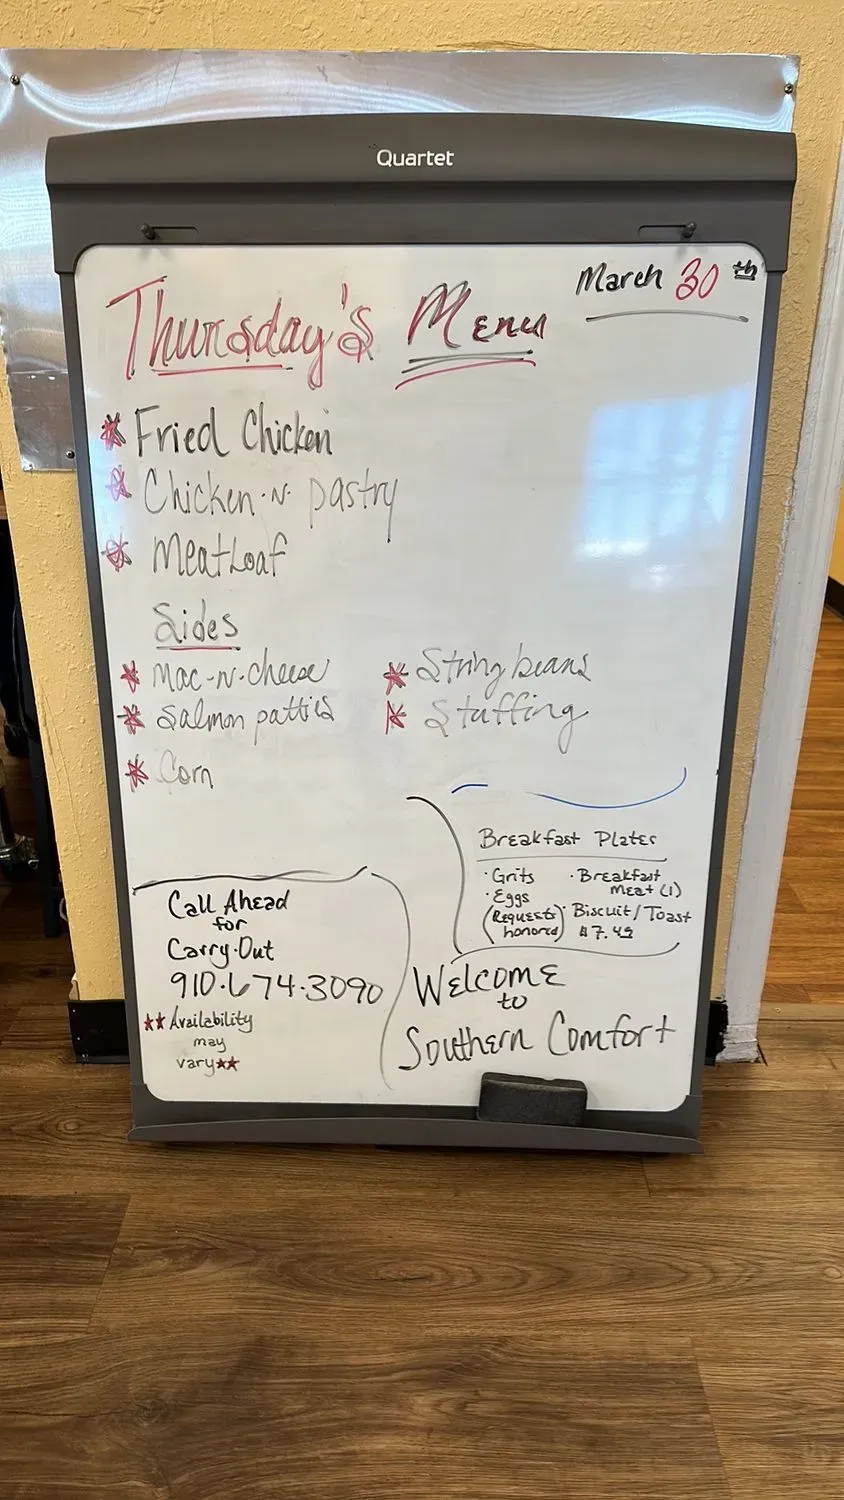 Quartet
March 30th
Thursday's Menu
Fried Chicken
Chicken-N-pastry
Meatloaf
Sides
Mac-N-cheese
Salmon patties
Corn
String beans
Stuffing
Breakfast Plates
· Grits
· Eggs
(Requests honored)
· Breakfast meat (1)
· Biscuit/Toast
$7.49
Call Ahead
for
Carry-Out
910-674-3090
**Availability
may
vary**
Welcome
to
Southern Comfort